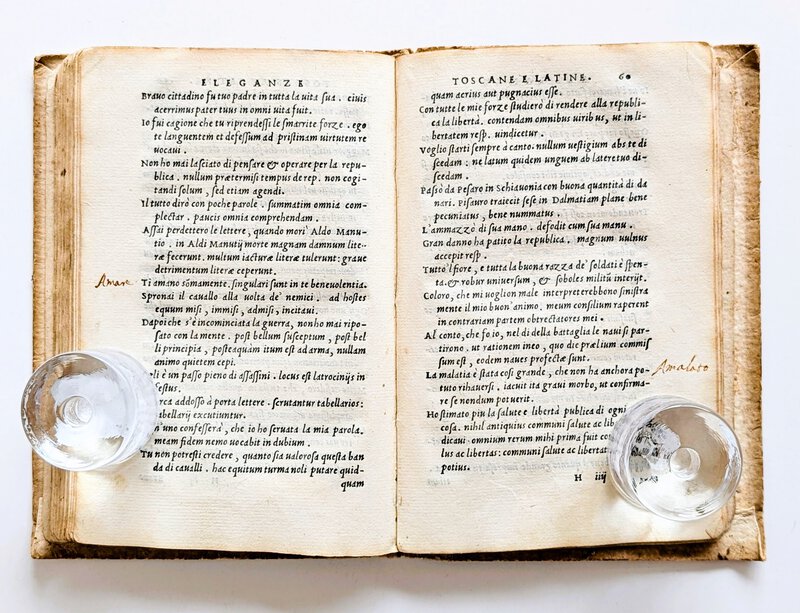 ELEGANZE
Bravo cittadino fu tuo padre in tutta la vita sua . ciuis
acerrimus pater tuus in omni vita fuit.
Io fui cagione che tu riprendessi le smarrite forze . ego
te languentem et defessum ad pristinam uirtutem re
uocaui .
Non ho mai lasciato di pensare & operare per la repu-
blica . nullum prætermisi tempus de rep. non cogi-
tandi solum , sed etiam agendi.
Il tutto dirò con poche parole . summatim omnia com-
plectar . paucis omnia comprehendam .
Assai perdettero le lettere , quando morì Aldo Manu-
tio . in Aldi Manutij morte magnam damnum lite-
ræ fecerunt. multum iacturæ literæ tulerunt: graue
detrimentum literæ ceperunt.
Amare
Ti amano sōmamente. singulari sunt in te beneuolentia.
Spronai il cauallo alla uolta de' nemici . ad hostes
equum misi , immisi , admisi , incitaui .
Dapoiche s'è incominciata la guerra, non ho mai ripo-
sato con la mente . post bellum susceptum , post bel
li principia , posteaquàm itum est ad arma, nullam
animo quietem cepi.
è un passo pieno di assassini . locus est latrocinijs in
festus.
addosso à porta lettere . scrutantur tabellarios:
tabellarij excutiuntur.
uno confesserà , che io ho seruata la mia parola.
meam fidem nemo uocabit in dubium .
Tu non potresti credere , quanto sia valorosa questa ban
da di caualli . hac equitum turma noli putare quid-
quam
TOSCANE E LATINE. 60
quam acrius aut pugnacius esse.
Con tutte le mie forze studierò di rendere alla republi-
ca la libertà. contendam omnibus uiribus, ut in li-
bertatem resp. uindicetur .
Voglio starti sempre à canto. nullum uestigium abs te di
scedam : ne latum quidem unguem ab latere tuo di-
scedam.
Passò da Pesaro in Schiauonia con buona quantità di da
nari . Pisauro traiecit sese in Dalmatiam plane bene
pecuniatus , bene nummatus .
L'ammazzò di sua mano . defodit cum sua manu .
Gran danno ha patito la republica . magnum uulnus
accepit resp .
Tutto'l fiore, e tutta la buona razza de' soldati è spen-
ta. & robur uniuersum , & soboles militū interijt.
Coloro, che mi uoglion male interpreterebbono sinistra
mente il mio buon'animo. meum consilium raperent
in contrariam partem obtrectatores mei .
Al conto, che fo io, nel dì della battaglia le naui si par-
tirono. ut rationem ineo , quo die prælium commis
sum est , eodem naues profectæ sunt.
Amalato
La malatia è stata cosi grande , che non ha anchora po-
tuto rihauersi . iacuit ita graui morbo, ut confirma-
re se nondum potuerit.
Ho stimato piu la salute e libertà publica di ogni
cosa. nihil antiquius communi salute ac libertat
dicaui : omnium rerum mihi prima fuit co
lus ac libertas: communi salute ac libertat
potius.
H iiij